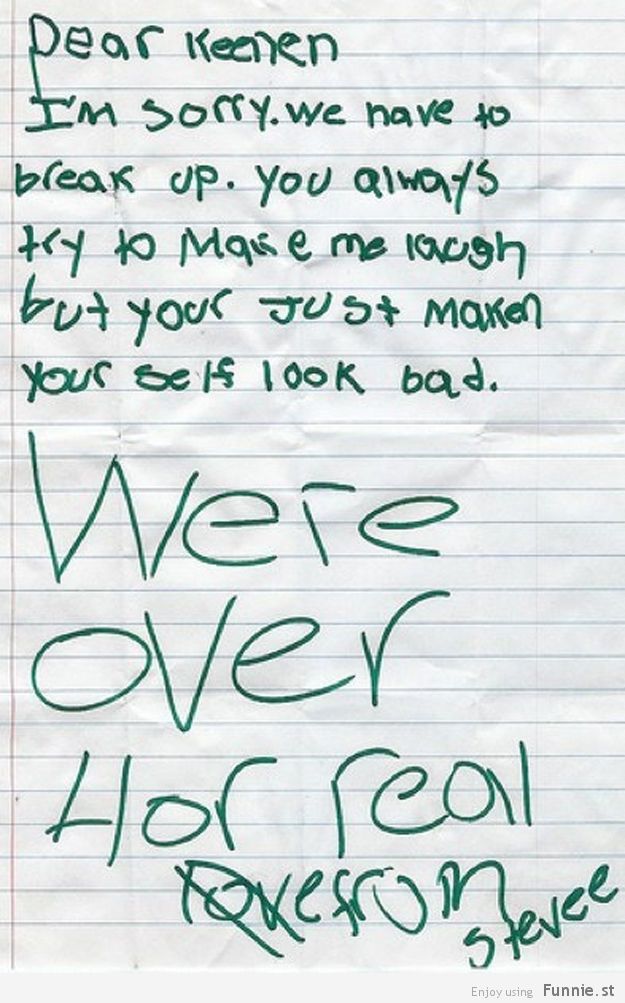 Dear Keenen
I'm sorry. we have to
break up. you always
try to make me laugh
but your Just maken
your self look bad.
Were
over
4or real
Love from
stevee
Enjoy using Funnie.st